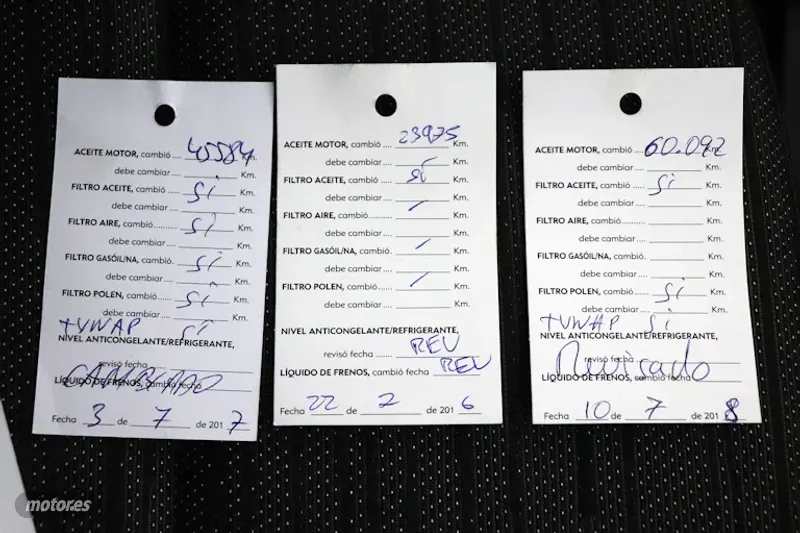 ACEITE MOTOR, cambió .... 45584 Km.
debe cambiar .... Km.
FILTRO ACEITE, cambió .... si Km.
debe cambiar .... Km.
FILTRO AIRE, cambió .... si Km.
debe cambiar .... Km.
FILTRO GASÓIL/NA, cambió .... si Km.
debe cambiar .... Km.
FILTRO POLEN, cambió .... si Km.
debe cambiar .... Km.
si
NIVEL ANTICONGELANTE/REFRIGERANTE,
revisó fecha
CAMBIADO
LÍQUIDO DE FRENOS, cambió fecha
Fecha 3 de 7 de 2017
ACEITE MOTOR, cambió .... 23975 Km.
debe cambiar .... Km.
FILTRO ACEITE, cambió .... si Km.
debe cambiar .... Km.
FILTRO AIRE, cambió .... Km.
debe cambiar .... Km.
FILTRO GASÓIL/NA, cambió. Km.
debe cambiar .... Km.
FILTRO POLEN, cambió .... Km.
debe cambiar .... Km.
NIVEL ANTICONGELANTE/REFRIGERANTE,
revisó fecha REV
LÍQUIDO DE FRENOS, cambió fecha REV
Fecha 22 de 2 de 2016
ACEITE MOTOR, cambió .... 60.092 Km.
debe cambiar .... Km.
FILTRO ACEITE, cambió .... si Km.
debe cambiar .... Km.
FILTRO AIRE, cambió .... Km.
debe cambiar .... Km.
FILTRO GASÓIL/NA, cambió. Km.
debe cambiar .... Km.
FILTRO POLEN, cambió .... si Km.
debe cambiar .... Km.
si
NIVEL ANTICONGELANTE/REFRIGERANTE,
revisó fecha
Revisado
LÍQUIDO DE FRENOS, cambió fecha
Fecha 10 de 7 de 2018
motor.es